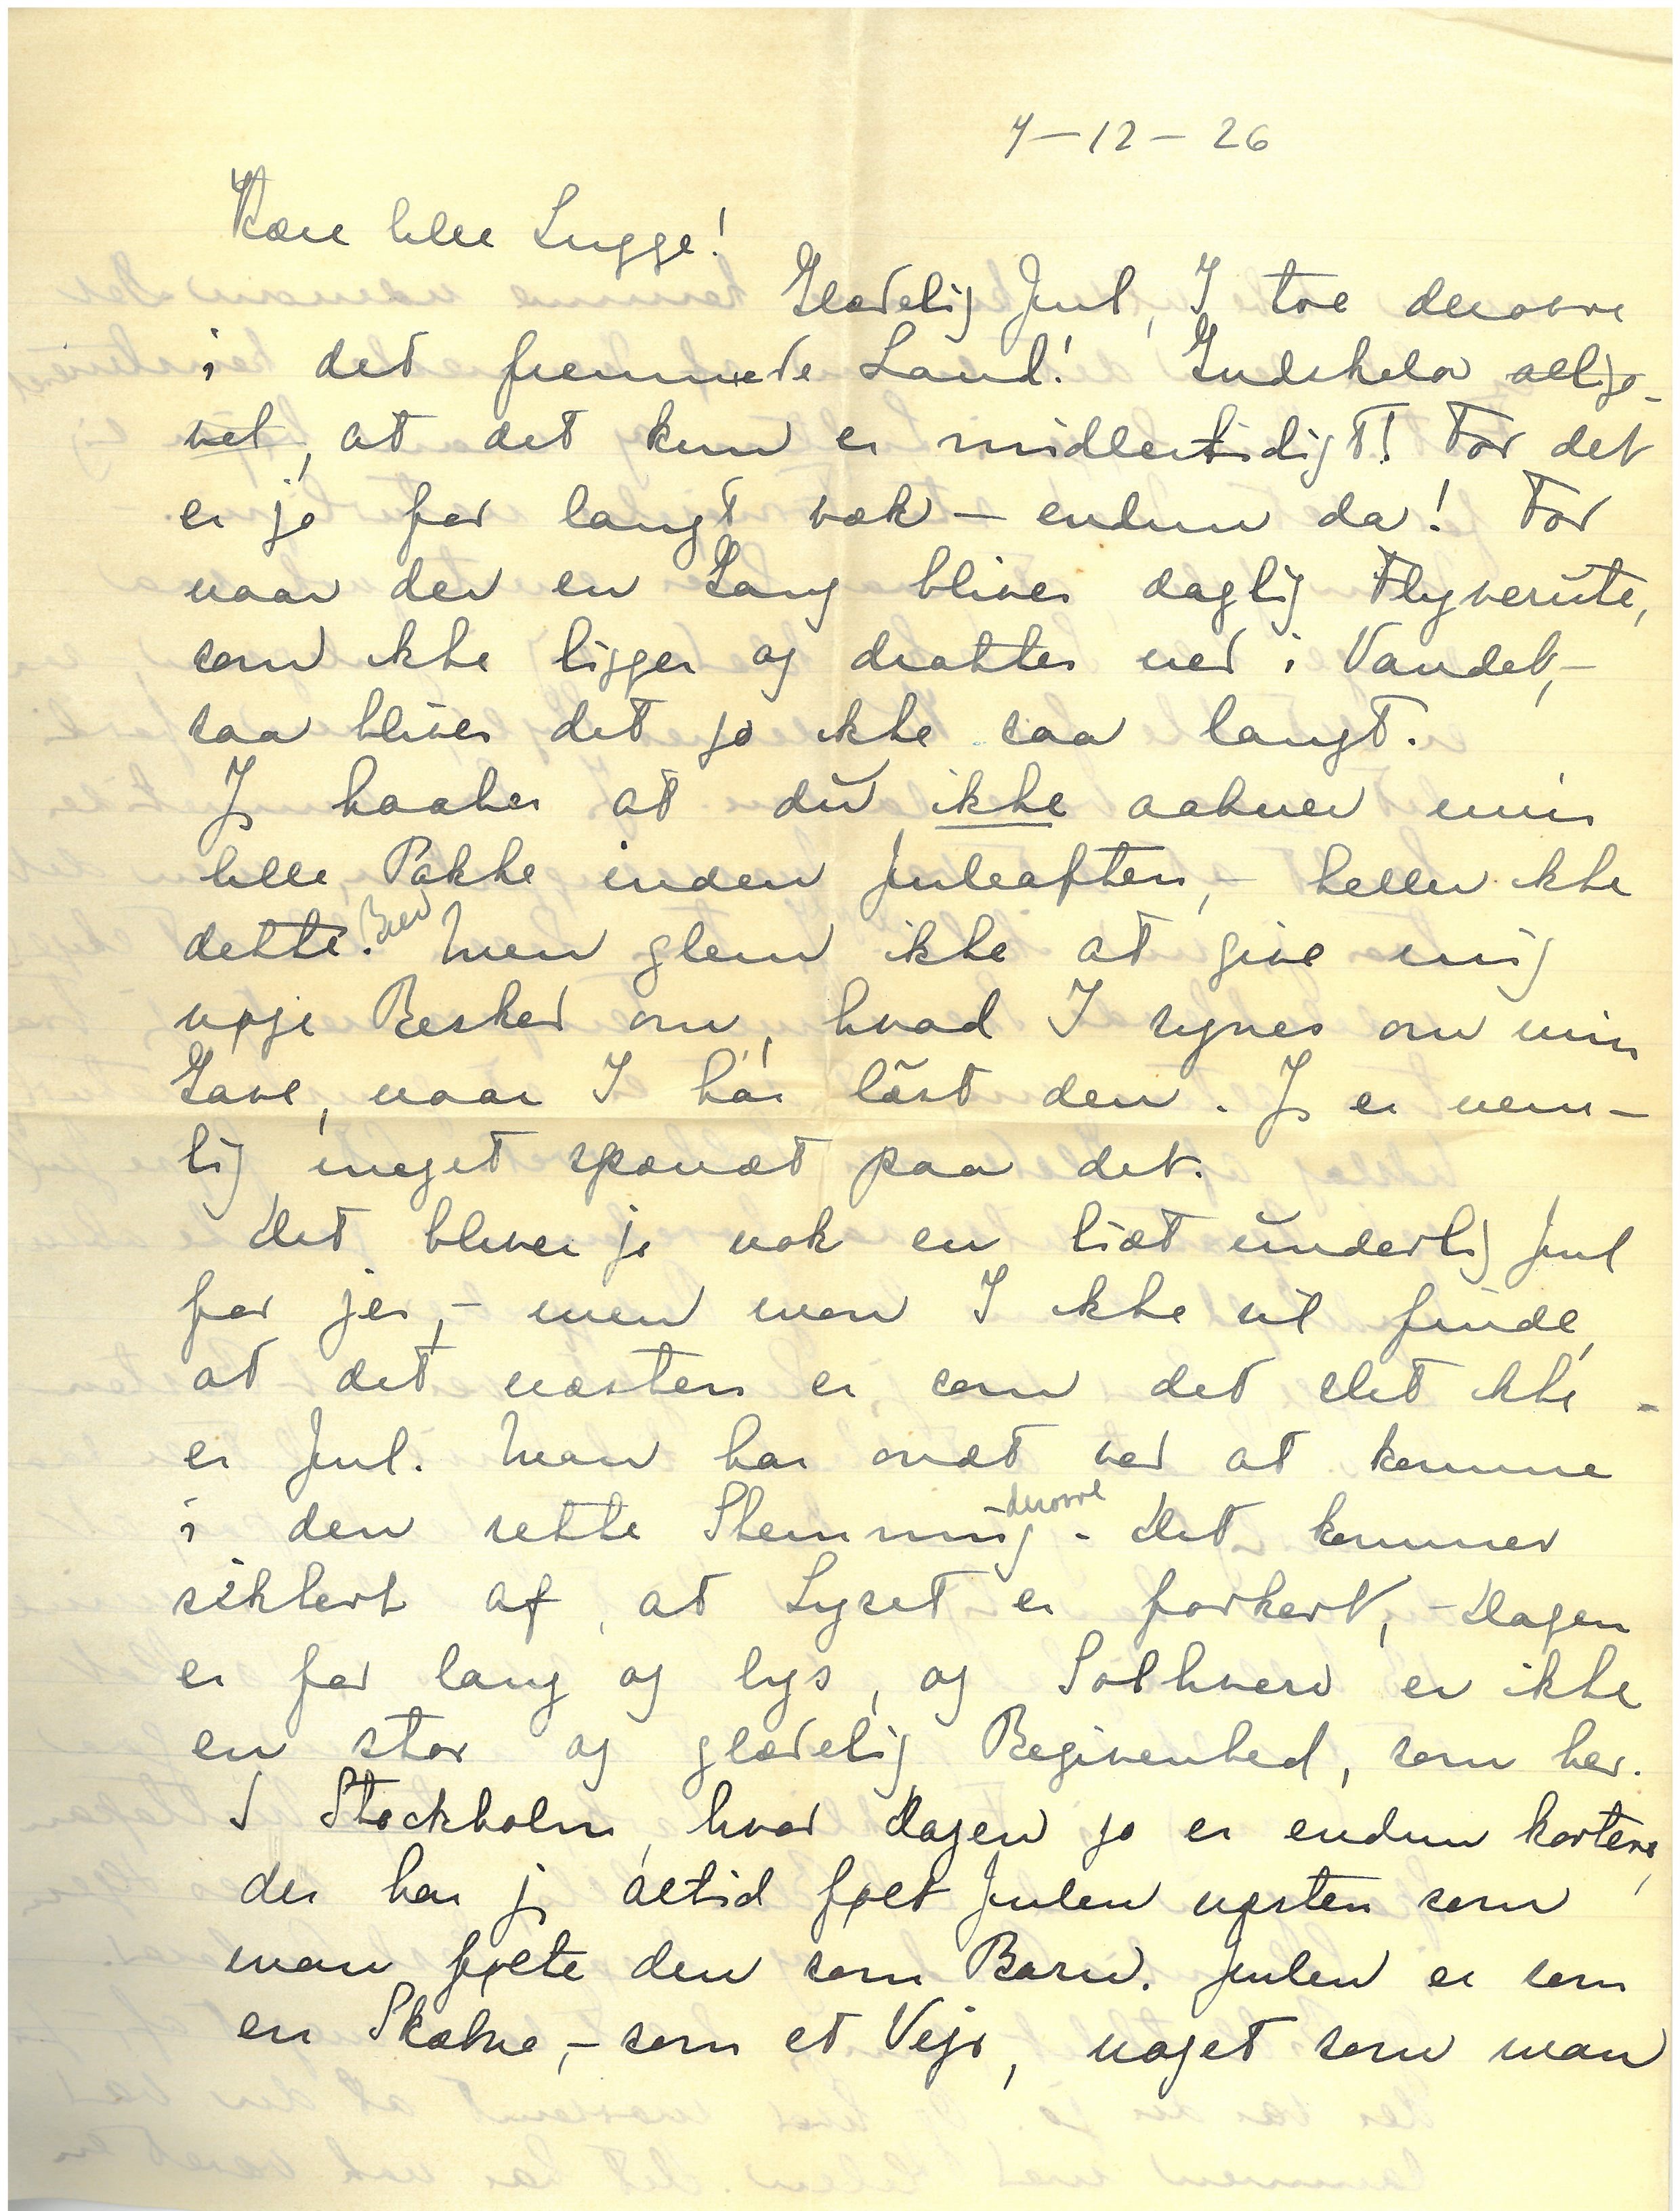 7-12-26
Kære lille Lugge!
Glædelig Jul, I toe derovre
i det fremmede Land! Gudskelov allige-
vel, at det kun er midlertidigt! For det
er jo for langt væk - endnu da! For
naar der en Gang bliver daglig Flyverute,
som ikke ligger og dratter ned i Vandet, -
saa bliver det jo ikke saa langt.
Jeg haaber at du ikke aabner min
lille Pakke inden Juleaften, - heller ikke
dette Brev. Men glem ikke at give mig
nøje Besked om, hvad I synes om min
Gave, naar I har læst den. Jeg er nem-
lig meget spændt paa det.
Det bliver jo nok en lidt underlig Jul
for jer, - men mon I ikke vil finde,
at det næsten er som det slet ikke
er Jul. Man har ondt ved at komme
i den rette Stemning derovre. Det kommer
sikkert af, at Lyset er forkert, - Dagen
er for lang og lys, og Solhverv er ikke
en stor og glædelig Begivenhed, som her.
I Stockholm, hvor Dagen jo er endnu kortere,
der har jeg altid følt Julen næsten som
man følte den som Barn. Julen er som
en Skæbne, - som et Vejr, noget som man